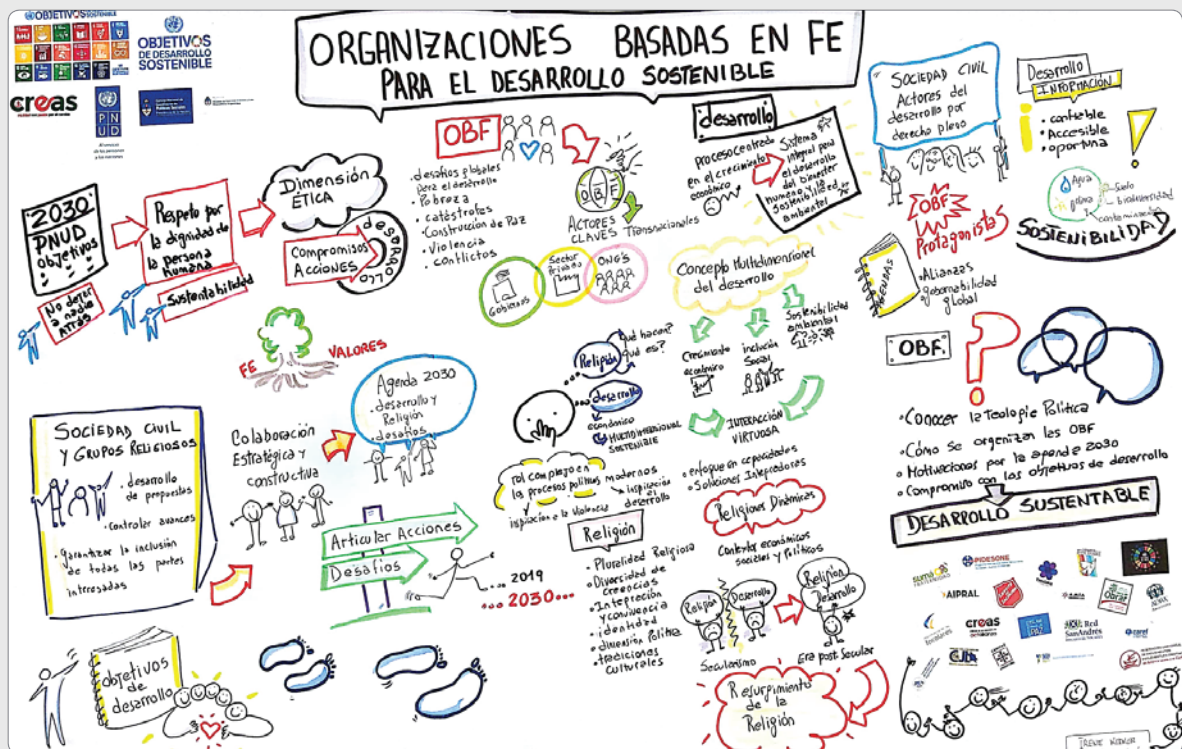 OBJETIVOS
OBJETIVOS
DE DESARROLLO
SOSTENIBLE
creas
P N
U D
Al servicio
de las personas
y las naciones
ORGANIZACIONES BASADAS EN FE
PARA EL DESARROLLO SOSTENIBLE
2030
PNUD
objetivos
No dejar
a nadie
ATRÁS
Respeto por
la dignidad de
la persona
humana
Sustentabilidad
Dimensión
ÉTICA
Compromisos
ACCIONES
DESARROLLO
FE
VALORES
OBF
.desafíos globales
para el desarrollo
• Pobreza
• catástrofes
• Construcción de Paz
• Violencia
conflictos
OBF
ACTORES
CLAVES Transnacionales
Gobiernos
Sector
Privado
ONG'S
desarrollo
Proceso Centrado
en el crecimiento
económico
Sistema
integral para
el desarrollo
del bienestar
humano y la
sostenibilidad
ambiental
Concepto Multidimensional
del desarrollo
Crecimiento
económico
inclusión
Social
Sostenibilidad
ambiental
INTERACCIÓN
VIRTUOSA
• enfoque en capacidades
• Soluciones Integradoras
SOCIEDAD CIVIL
Actores del
desarrollo por
derecho pleno
OBF
Protagonistas
AGENDAS
• Alianzas
• gobernabilidad
global
Desarrollo
INFORMACIÓN
• confiable
• Accesible
• oportuna
Agua
clima
Suelo
biodiversidad
contaminación
SOSTENIBILIDAD
OBF
• Conocer la Teología Política
• Cómo se organizan las OBF
• Motivaciones por la agenda 2030
• Compromiso con los objetivos de desarrollo
DESARROLLO SUSTENTABLE
SOCIEDAD CIVIL
Y GRUPOS RELIGIOSOS
• desarrollo
de propuestas
• controlar avances
• garantizar la inclusión
de todas las partes
interesadas
Colaboración
Estratégica y
constructiva
Agenda 2030
. desarrollo y
Religión
. desafíos
Articular Acciones
Desafíos
... 2019
... 2030...
Qué hacen?
qué es?
Religión
desarrollo
económico
MULTIDIMENSIONAL
SOSTENIBLE
rol complejo en
los procesos políticos modernos
inspiración a la violencia
inspiración
al desarrollo
Religión
• Pluralidad Religiosa
• Diversidad de
creencias
• Integración
y convivencia
• identidad
• dimensión Política
• tradiciones
culturales
Religious Dinámicas
Contextos económicos
sociales y políticos
Religión
Desarrollo
Religión
Desarrollo
Secularismo
Era post Secular
Resurgimiento
de la
Religión
objetivos
de
desarrollo
suma
PIDESONE
AIPRAL
creas
Obrar
ADRA
Red
SanAndrés